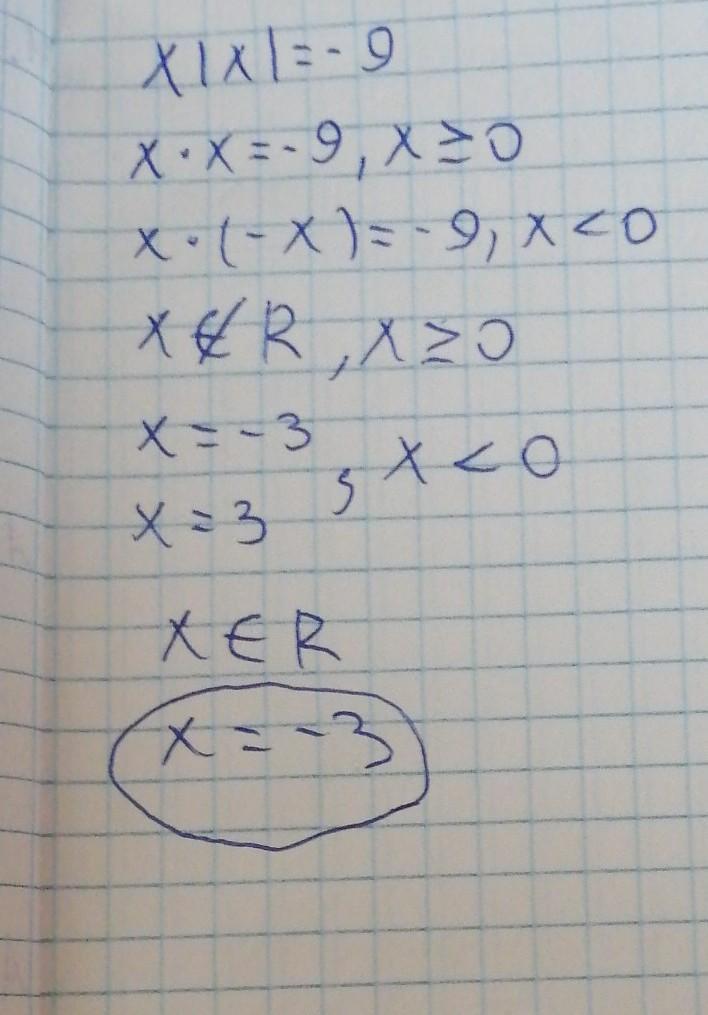 x|x|=-9
x·x=-9, x≥0
x·(-x)=-9, x<0
x∉R, x≥0
x=-3
x=3 , x<0
x∈R
x=-3